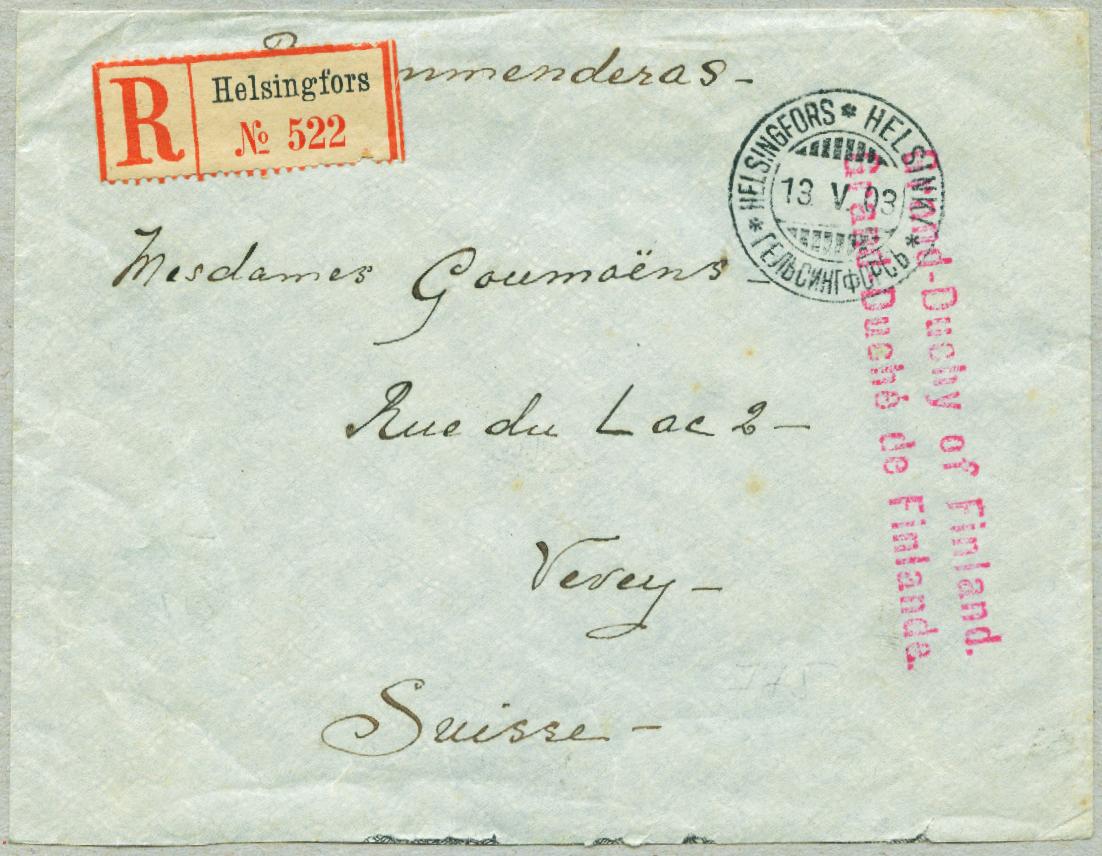 R Helsingfors
№ 522
mmenderas-
HELSINGFORS * HELSINKI * ГЕЛЬСИНГФОРСЪ *
13 V 03
Mesdames Goumoëns-
Rue du Lac 2-
Vevey-
Suisse-
Grand-Duchy of Finland.
Grand-Duché de Finlande.